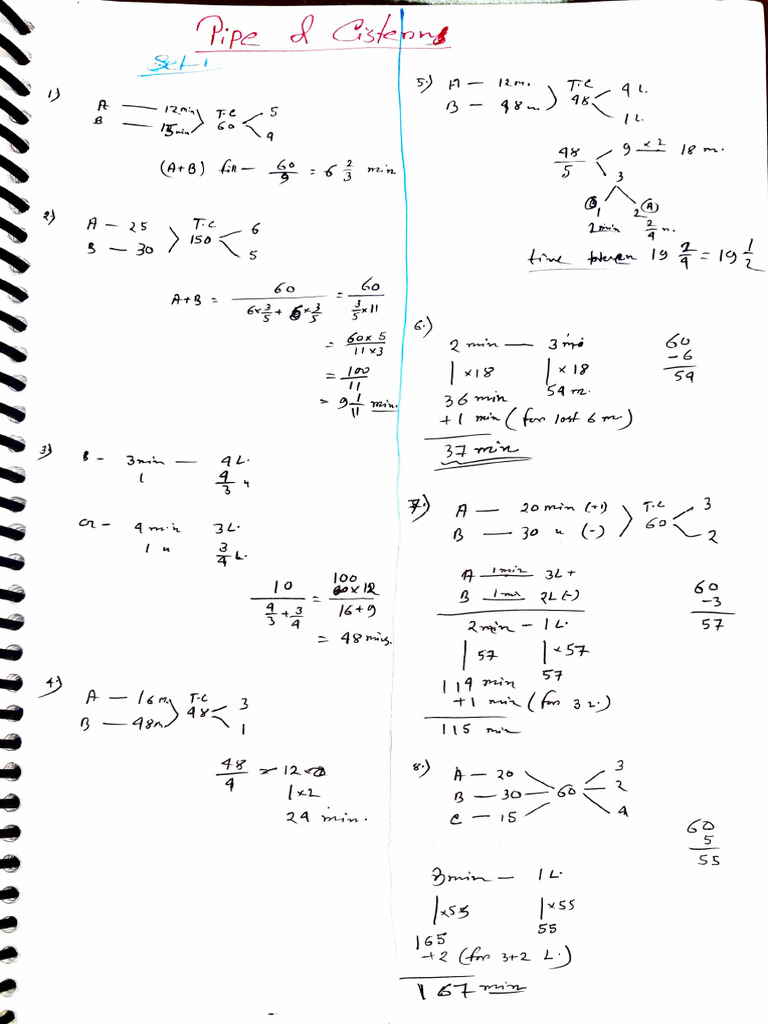 Pipe & Cisterns
Set-1
1)
A — 12 min
B — 15 min
T.C
60
5
4
(A+B) fill — 60/9 = 6 2/3 min
2)
A — 25
B — 30
T.C
150
6
5
A+B = 60/(6×3/5 + 5×3/5) = 60/(3/5×11)
= 60×5/11×3
= 100/11
= 9 1/11 min.
3)
B - 3min — 4L.
1 4/3 "
4 min 3L.
1 " 3/4 L.
10/(4/3+3/4) = 100×12/16+9
= 48 mins.
4)
A — 16 m.
B — 48m
T.C
48
3
1
48/4 = 12
1×2
24 min.
5)
A — 12m.
B — 48m.
T.C
48
4L.
1L.
48/5
9 ×2 18 m.
3
B A
1 2
2min 2/4 m.
time 19 2/4 = 19 1/2
6.)
2 min — 3 m
| ×18 | ×18
36 min 54 m.
+1 min (for last 6 m)
37 min
60
-6
54
7.)
A — 20 min (+)
B — 30 " (-)
T.C
60
3
2
A 1min 3L+
B 1min 2L(-)
2min - 1L.
| 57 | ×57
114 min 57
+1 min (for 3L.)
115 min
60
-3
57
8.)
A — 20
B — 30
C — 15
60
3
2
4
3min — 1L.
|×55 |×55
165 55
+2 (for 3+2 L.)
167 min
60
5
55